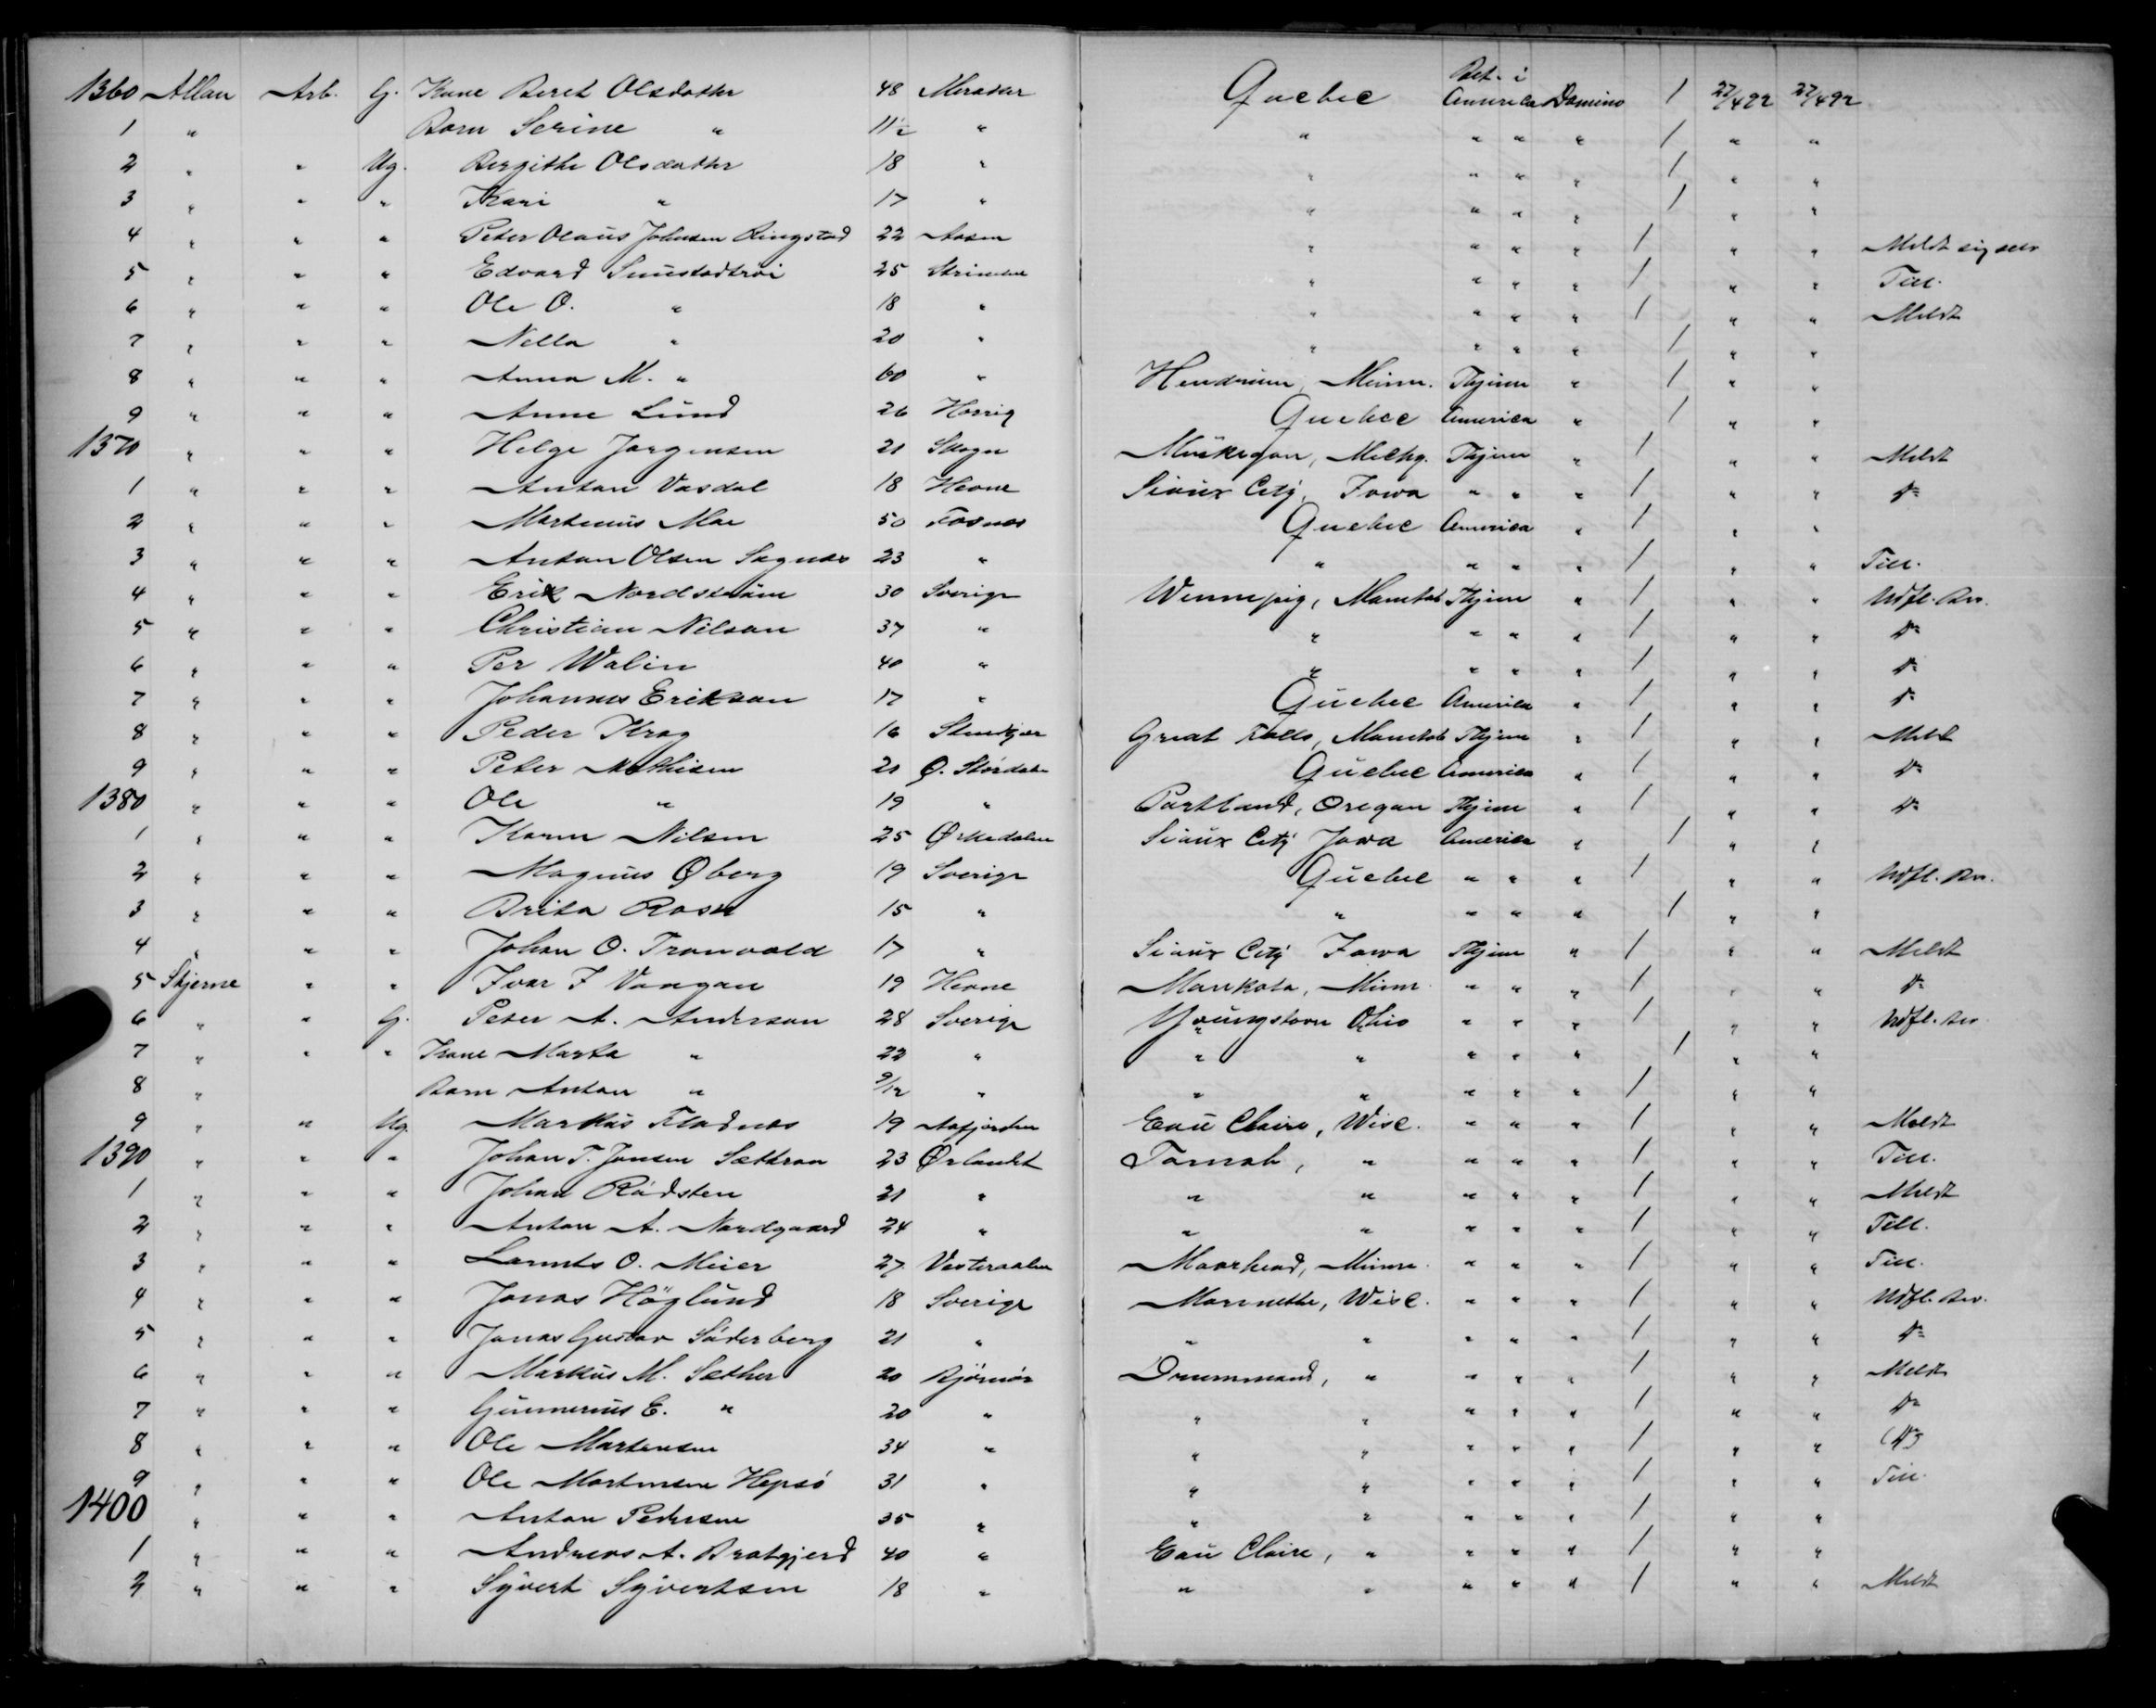 Bet. i
1360 Allan Arb. G. Kone Beret Olsdatter 48 Meraker Quebec America Domino 1 27/4 92 27/4 92
1 " Barn Serine " 11½ " " " " " 1 " "
2 " " Ug. Bergithe Olsdatter 18 " " " " " 1 " "
3 " " " Kari " 17 " " " " " 1 " "
4 " " " Peter Olaus Johnsen Ringstad 22 Aasen " " " " 1 " " Meldt sig selv
5 " " " Edvard 25 Strinden " " " " 1 " " Till.
6 " " " Ole O. " 18 " " " " " 1 " " Meldt
7 " " " Nella " 20 " " " " " 1 " "
8 " " " Anna M. " 60 " Hendrum, Minn. Thjem " 1 " "
9 " " " Anne Lund 26 Quebec America " 1 " "
1370 " " " Helge Jørgensen 21 Skogn Muskegon, Michg. Thjem " 1 " " Meldt
1 " " " Anton Vasdal 18 Hevne Sioux City, Iowa " " " 1 " " do
2 " " " Martinus Moe 50 Fosnes Quebec America " 1 " "
3 " " " Anton Olsen 23 " " " " " 1 " " Till.
4 " " " Erik Nordström 30 Sverige Winnepig, Manitob Thjem " 1 " " Udfl. Bev.
5 " " " Christian Nilson 37 " " " " " 1 " " do
6 " " " Per Walin 40 " " " " " 1 " " do
7 " " " Johannes Erikson 17 " Quebec America " 1 " " do
8 " " " Peder Krog 16 Stenkjær Great Falls, Manitob Thjem " 1 " " Meldt
9 " " " Peter Mathisen 21 Ø. Størdalen Quebec America " 1 " " do
1380 " " " Ole " 19 " Portland, Oregon Thjem " 1 " " do
1 " " " Karen Nilsen 25 Ørkedalen Sioux City Iowa America " 1 " "
2 " " " Magnus Øberg 19 Sverige Quebec " " " 1 " " Udfl. Bev.
3 " " " Brita Rosen 15 " " " " " 1 " "
4 " " " Johan O. Tronvold 17 " Sioux City Iowa Thjem " 1 " " Meldt
5 Stjerne " " Ivar I Vaagan 19 Hevne Mankota, Minn. " " " 1 " " do
6 " " G. Peter A. Anderson 28 Sverige Youngstown Ohio " " " 1 " " Udfl. Bev
7 " " " Kone Marta " 22 " " " " " " 1 " "
8 " Barn Anton " 9/12 " " " " " " 1 " "
9 " " Ug. Markus Fladnes 19 Aafjorden Eau Claire, Wisc. " " " 1 " " Meldt
1390 " " " Johan T. Jonsen Sættran 23 Ørlandet Tomah, " " " " 1 " " Till.
1 " " " Johan Rödsten 21 " " " " " " 1 " " Meldt
2 " " " Anton A. Nordgaard 24 " " " " " " 1 " " Till.
3 " " " O. Meier 27 Vesteraalen Moorhead, Minn. " " " 1 " " Till.
4 " " " Jonas Höglund 18 Sverige Marinette, Wisc. " " " 1 " " Udfl. Bev.
5 " " " Jonas Gustav Söderberg 21 " " " " " " 1 " " do
6 " " " Markus M. Sæther 20 Bjørnør Drummond, " " " " 1 " " Meldt
7 " " " Gunnerius E. " 20 " " " " " " 1 " " do
8 " " " Ole Martensen 34 " " " " " " 1 " " (do)
9 " " " Ole Mortensen Hepsö 31 " " " " " " 1 " " Till.
1400 " " " Anton Pedersen 35 " " " " " " 1 " "
1 " " " Andreas A. Bratgjerd 40 " Eau Claire, " " " " 1 " "
2 " " " Syvert Syvertsen 18 " " " " " " 1 " " Meldt